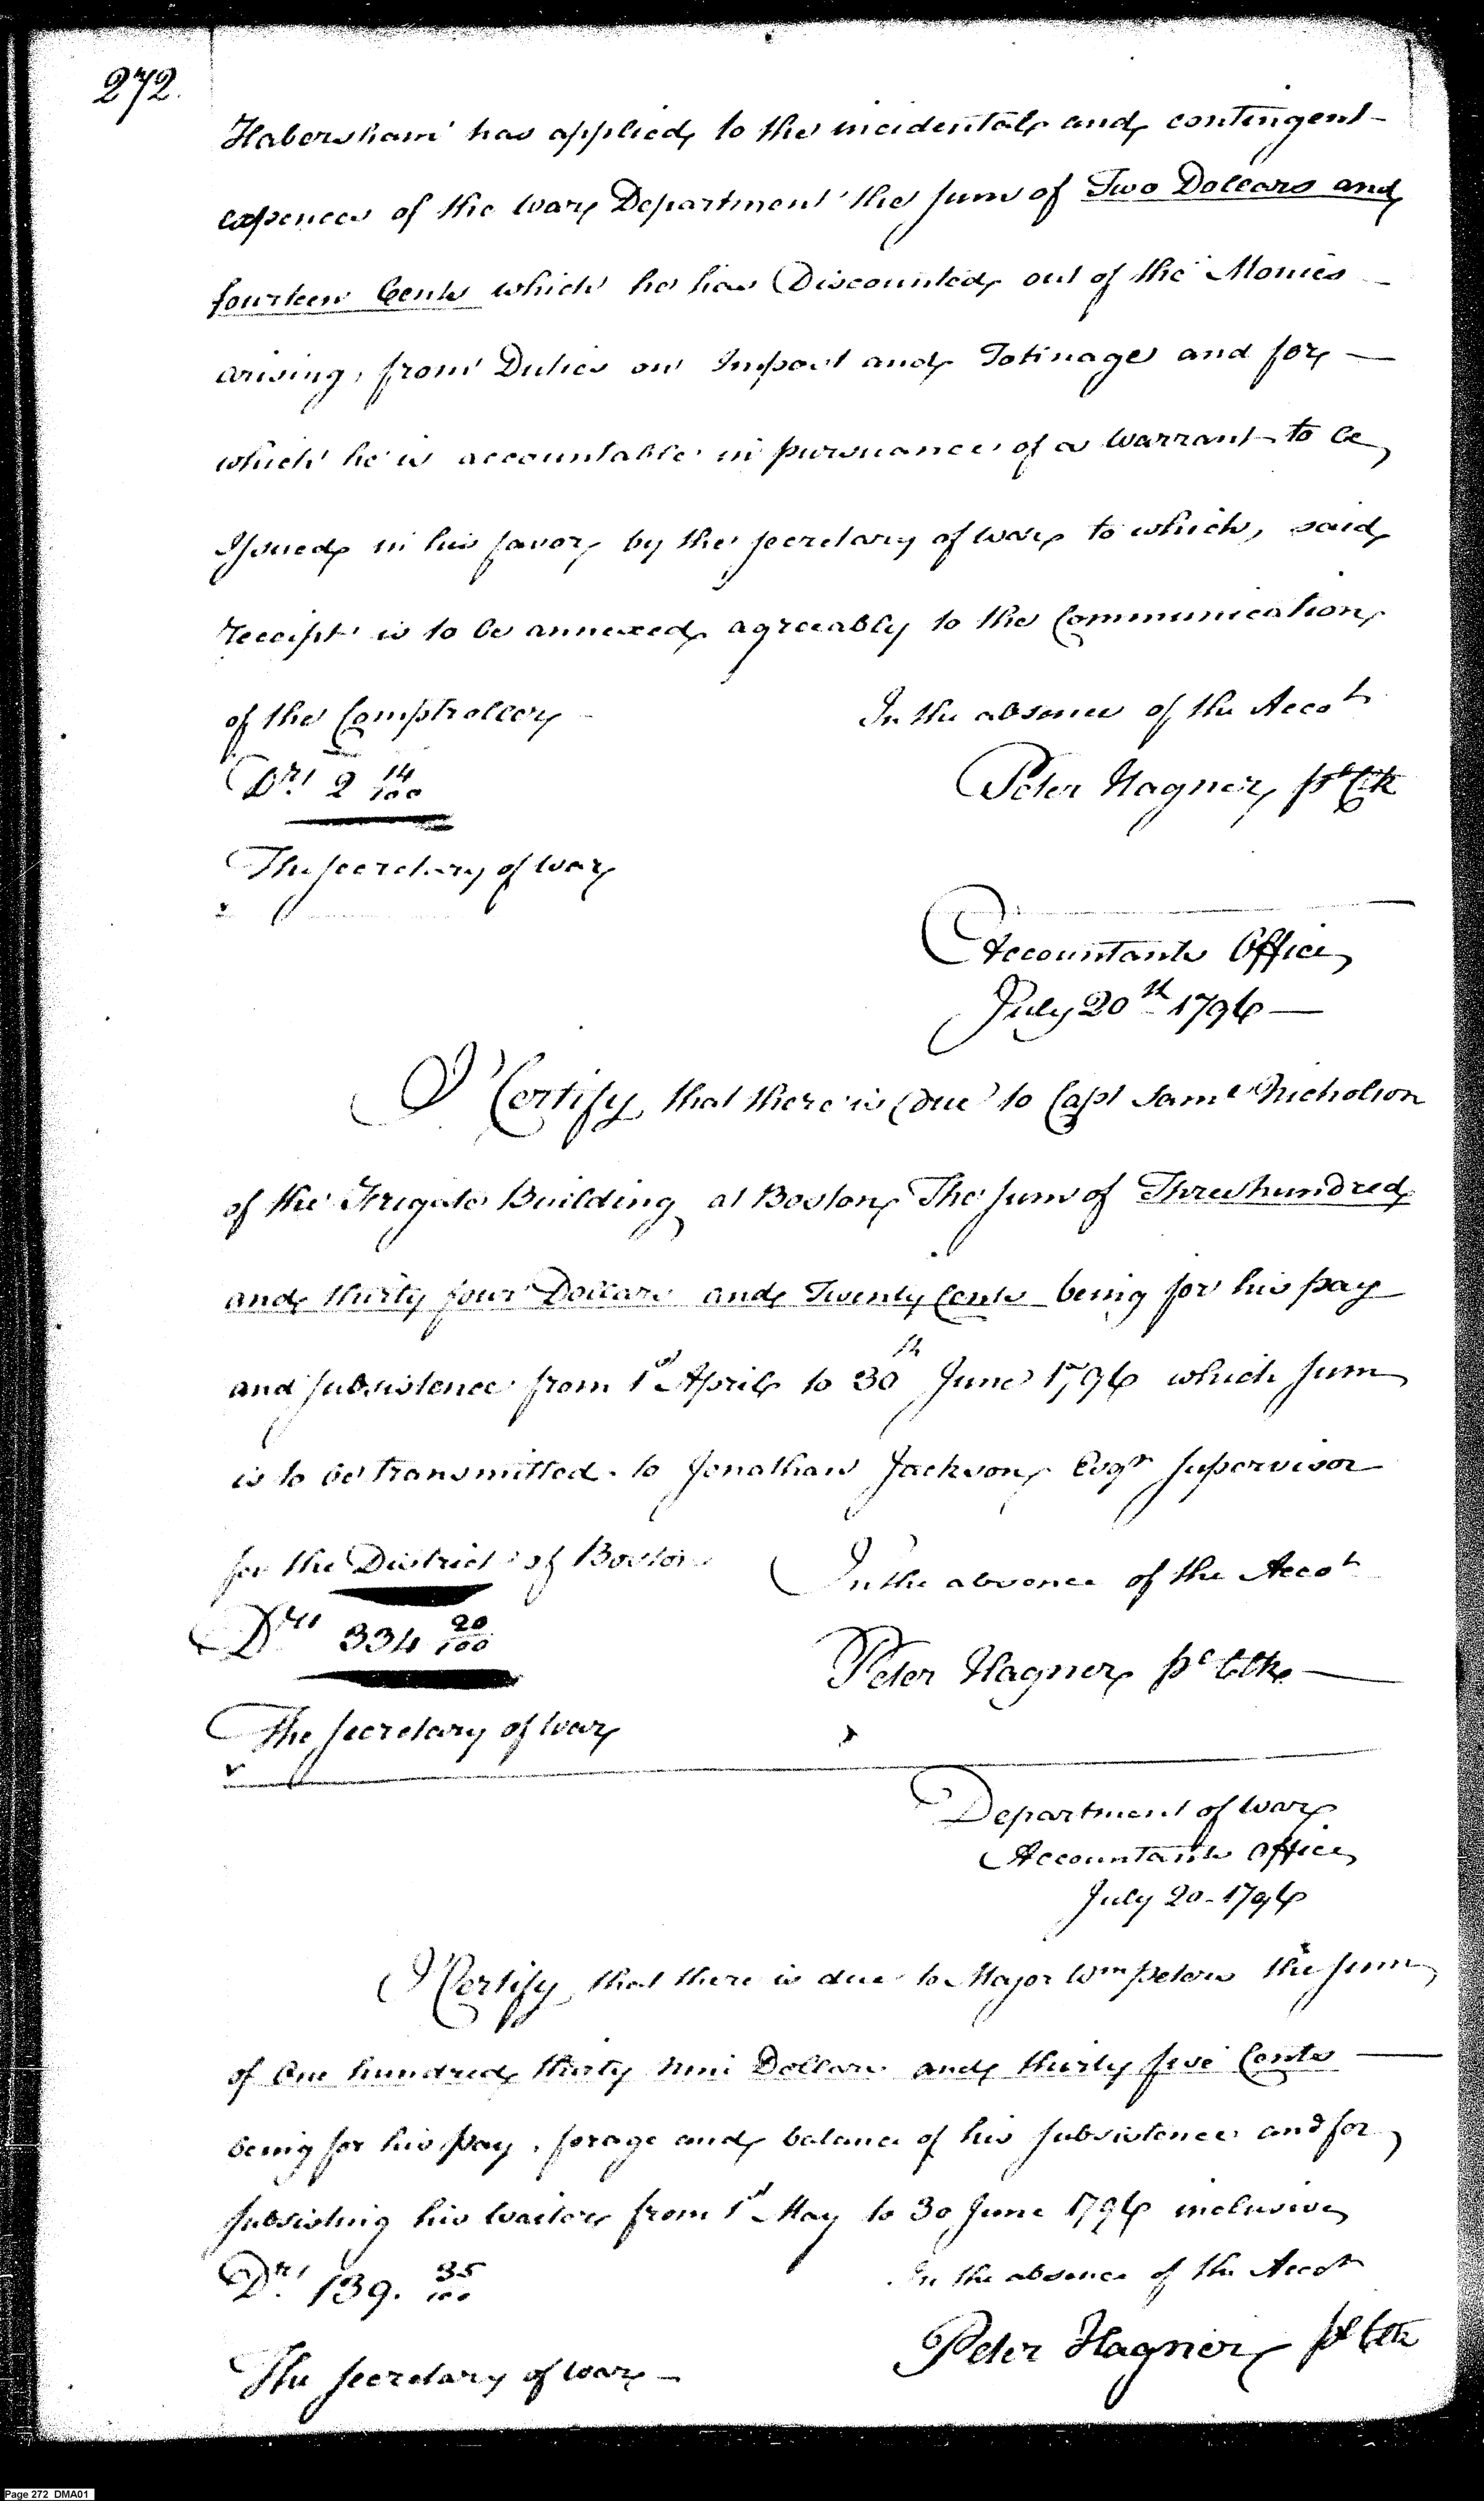 272.
Habersham has applied to the incidental and contingent
expences of the War Department the sum of Two Dollars and
fourteen Cents which he has Discounted out of the Monies
arising from Duties on Impost and Tonnage and for
which he is accountable in pursuance of a Warrant to be
Issued in his favor by the Secretary of War to which, said
receipt is to be annexed agreeably to the Communication
of the Comptroller
In the absence of the Accot
Drs 2 14/100
Peter Hagner pl Clk
The Secretary of War
Accountants Office
July 20th 1796
I Certify that there is due to Capt Saml Nicholson
of the Frigate Building at Boston The sum of Three hundred
and thirty four Dollars and Twenty Cents being for his pay
and subsistence from 1st April to 30th June 1796 which sum
is to be transmitted to Jonathan Jackson Esqr Supervisor
for the District of Boston
In the absence of the Accot
Drs 334 20/100
Peter Hagner pl Clk
The Secretary of War
Department of War
Accountants Office
July 20 - 1796
I Certify that there is due to Major Wm Peters the sum
of One hundred thirty nine Dollars and thirty five Cents
being for his pay, forage and balance of his subsistence and for
subsisting his Waiter from 1st May to 30 June 1796 inclusive
Drs 139. 35/100
In the absence of the Accot
Peter Hagner pl Clk
The Secretary of War
Page 272 DMA01